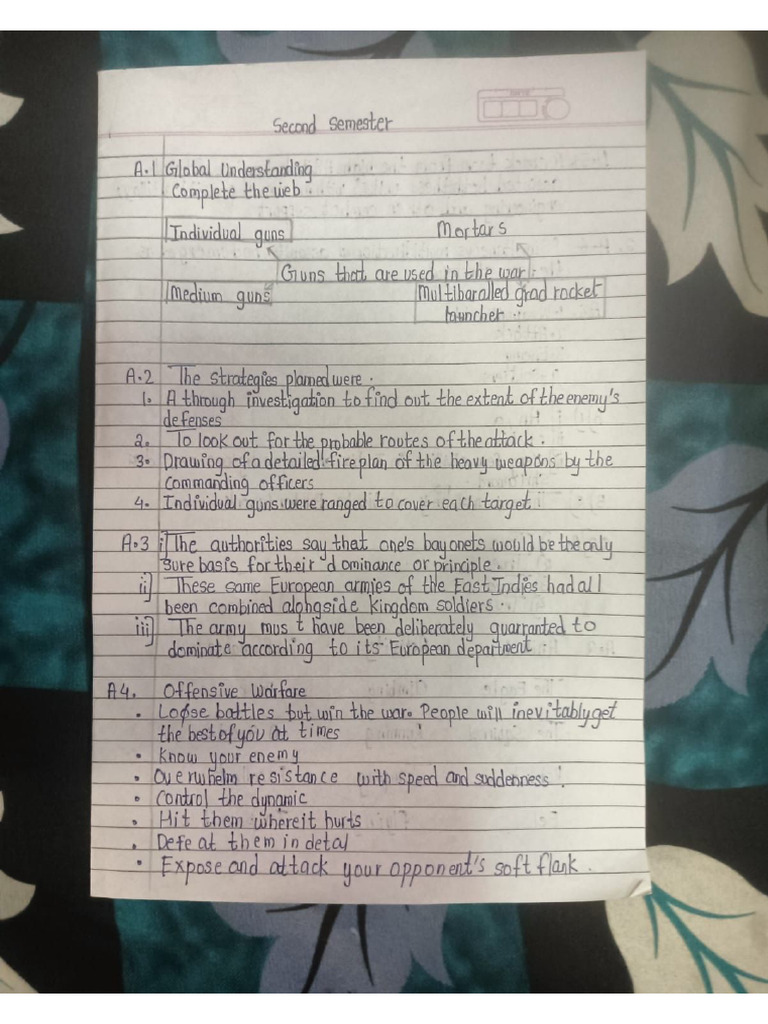 Second Semester
A.1 Global Understanding
Complete the web.
Individual guns Mortars
Guns that are used in the war.
Medium guns Multibaralled grad rocket
launcher.
A.2 The strategies planned were.
1. A through investigation to find out the extent of the enemy's
defenses
2. To look out for the probable routes of the attack.
3. Drawing of a detailed fire plan of the heavy weapons by the
commanding officers
4. Individual guns were ranged to cover each target
A.3 i] The authorities say that one's bayonets would be the only
sure basis for their dominance or principle.
ii] These same European armies of the East Indies had all
been combined alongside kingdom soldiers.
iii] The army must have been deliberately guarranted to
dominate according to its European department.
A4. Offensive Warfare
• Loose battles but win the war. People will inevitably get
the best of you at times
• Know your enemy
• Overwhelm resistance with speed and suddenness!
• Control the dynamic
• Hit them where it hurts
• Defeat them in detal
• Expose and attack your opponent's soft flank.